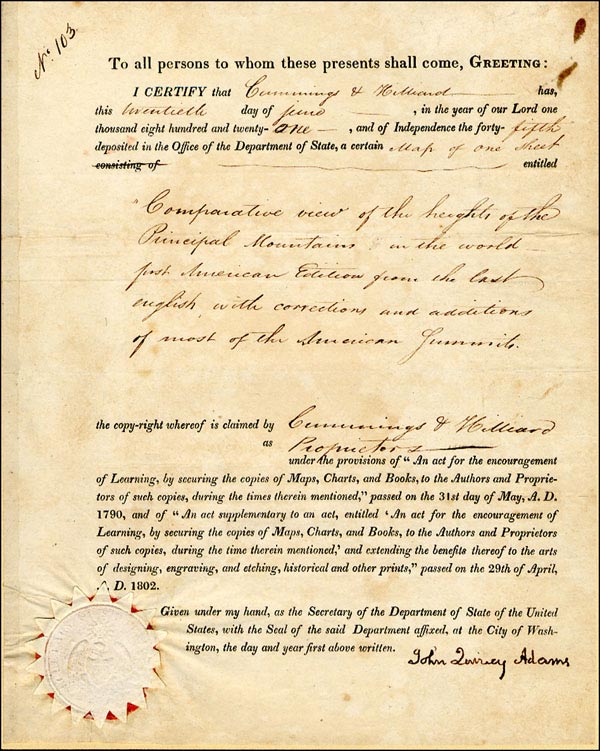 No. 103.
To all persons to whom these presents shall come, GREETING:
I CERTIFY that Cummings & Hilliard has,
this twentieth day of june, in the year of our Lord one
thousand eight hundred and twenty-one, and of Independence the forty-fifth
deposited in the Office of the Department of State, a certain Map of one Sheet
consisting of entitled
"Comparative view of the heights of the
Principal Mountains & in the world
first American Edition from the last
english, with corrections and additions
of most of the American Summits.
the copy-right whereof is claimed by Cummings & Hilliard
as Proprietors
under the provisions of "An act for the encouragement
of Learning, by securing the copies of Maps, Charts, and Books, to the Authors and Proprie-
tors of such copies, during the times therein mentioned," passed on the 31st day of May, A. D.
1790, and of "An act supplementary to an act, entitled 'An act for the encouragement of
Learning, by securing the copies of Maps, Charts, and Books, to the Authors and Proprietors
of such copies, during the time therein mentioned,' and extending the benefits thereof to the arts
of designing, engraving, and etching, historical and other prints," passed on the 29th of April,
A. D. 1802.
Given under my hand, as the Secretary of the Department of State of the United
States, with the Seal of the said Department affixed, at the City of Wash-
ington, the day and year first above written.
John Quincy Adams